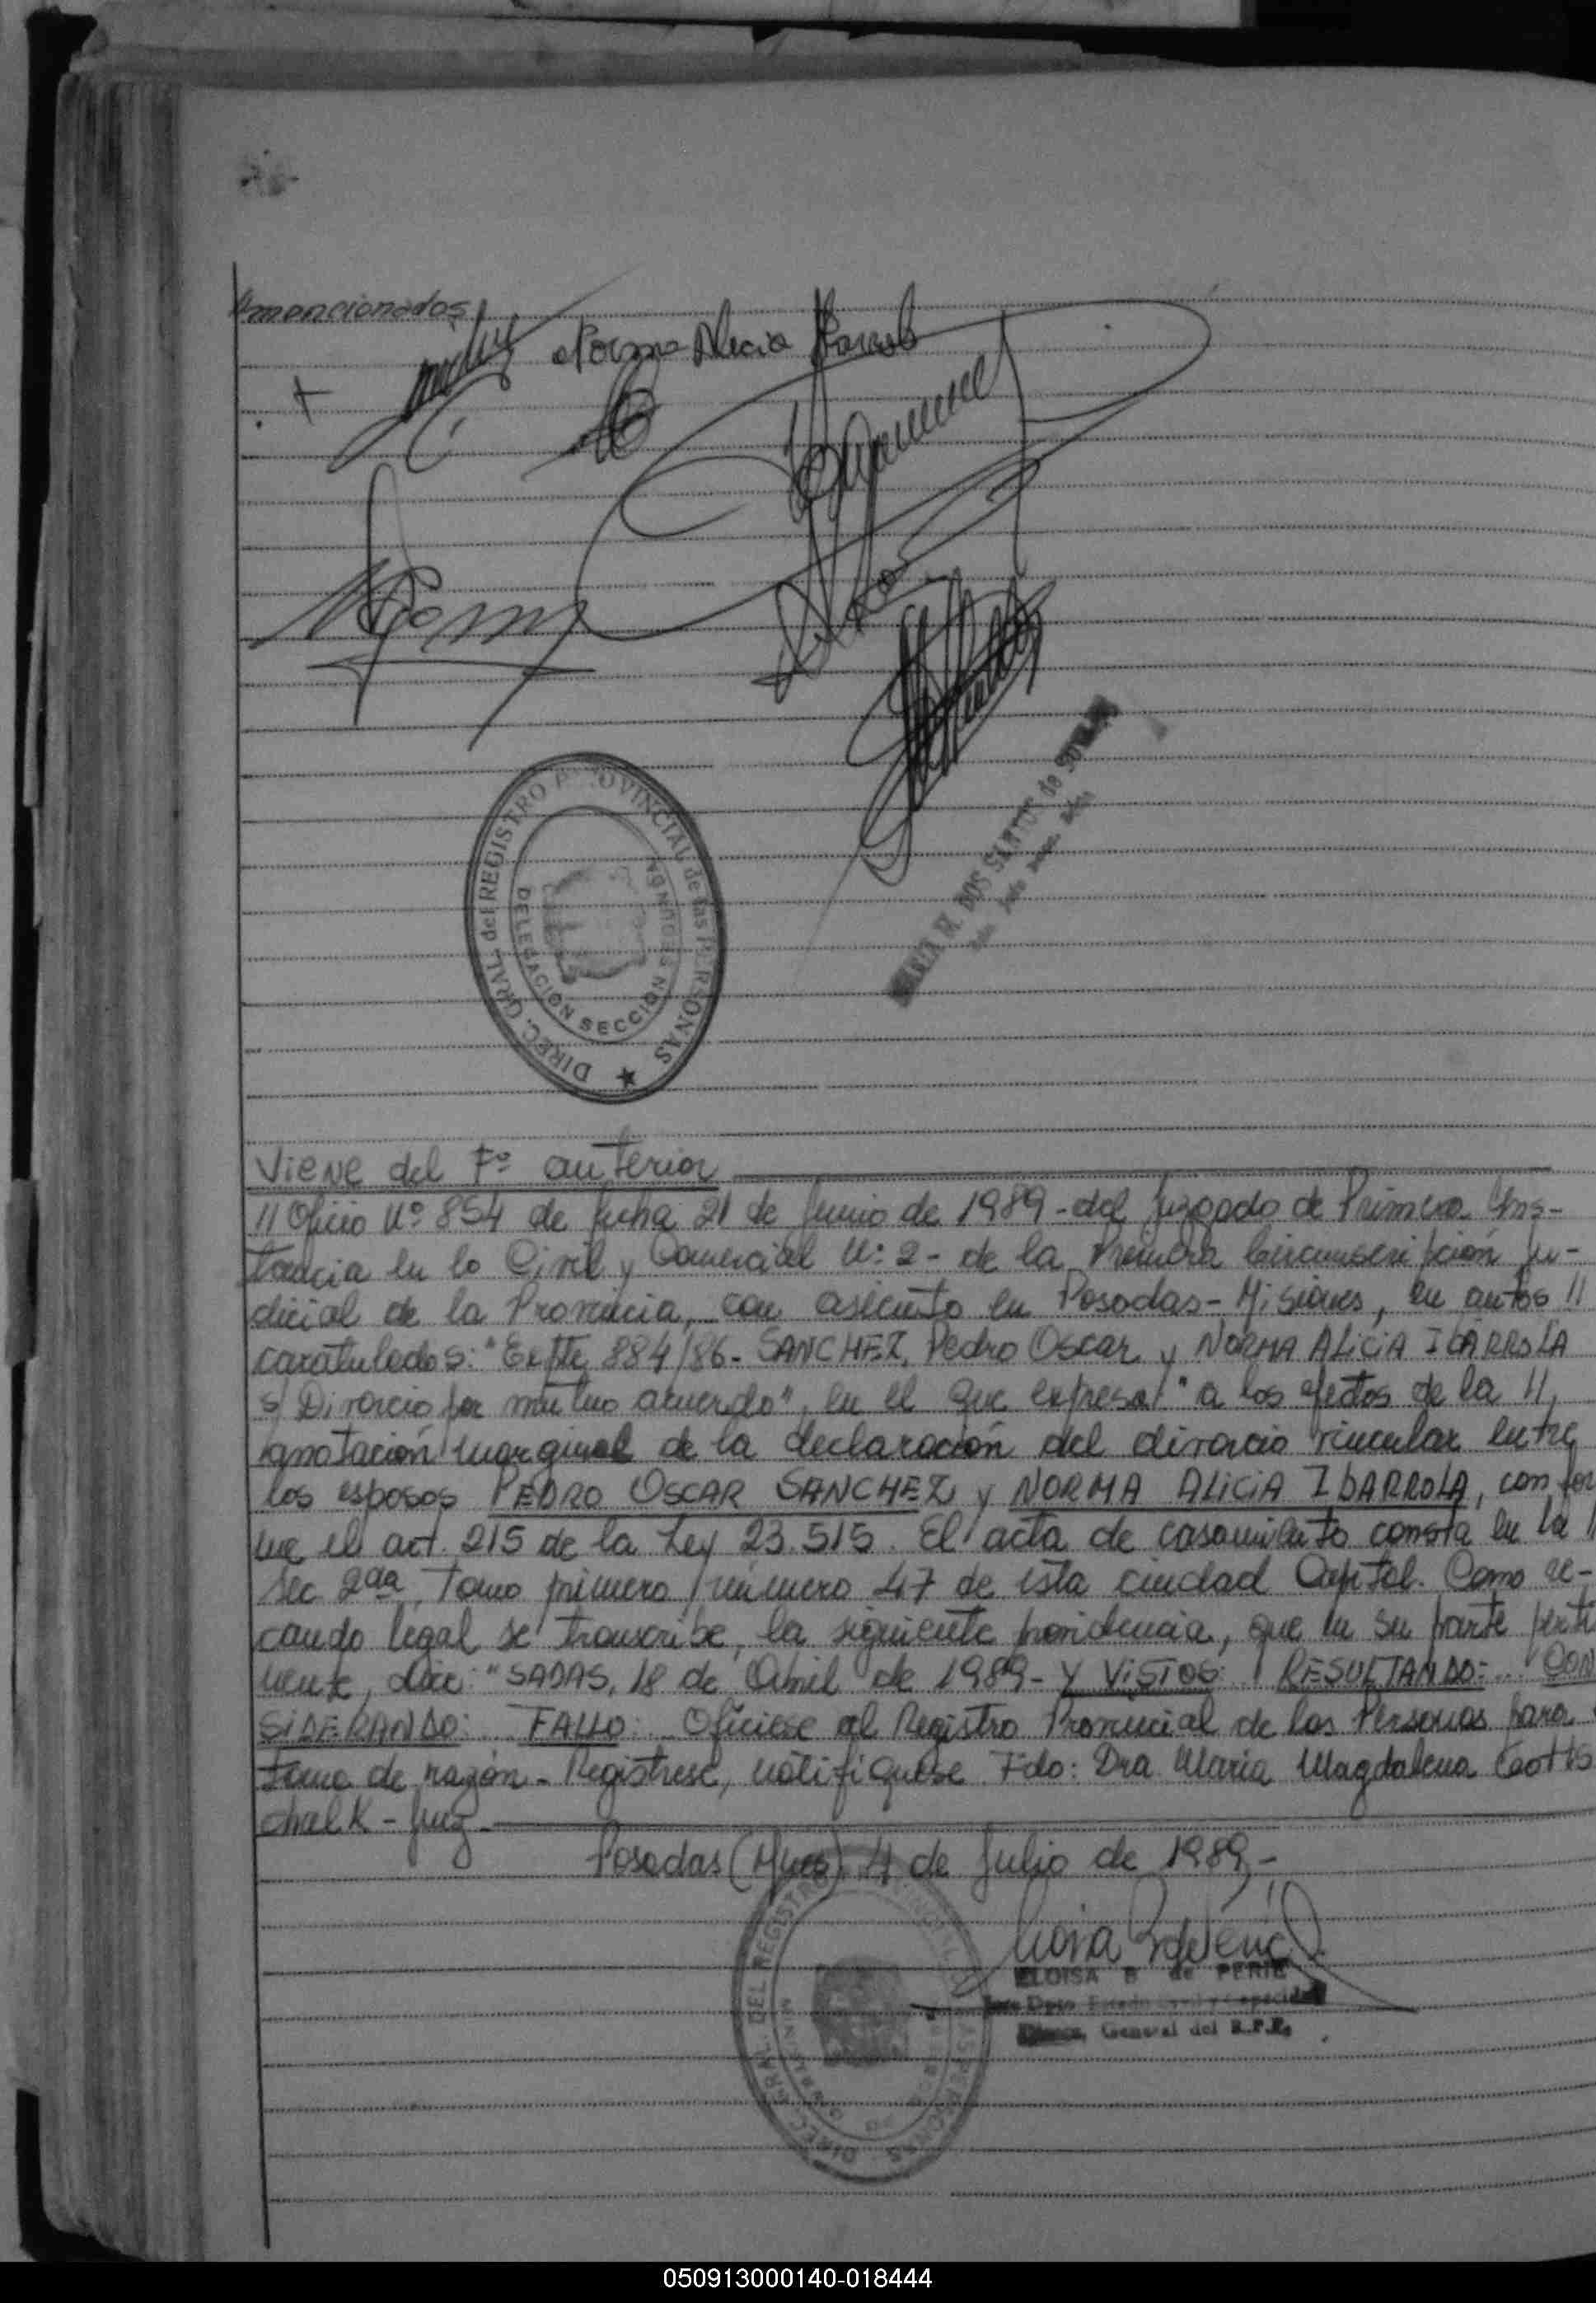 //mencionados
Norma Alicia Ibarrola
DIREC. GRAL. del REGISTRO PROVINCIAL de las PERSONAS
DELEGACION SECCION
DOS SANTOS de
Viene del Fº anterior
// Oficio Nº 854 de fecha 21 de Junio de 1989 - del Juzgado de Primera Ins-
tancia en lo Civil y Comercial Nº 2 - de la Primera Circunscripción Ju-
dicial de la Provincia, con asiento en Posadas - Misiones, en autos //
caratulados: "Expte 884/86 - SANCHEZ, Pedro Oscar y NORMA ALICIA IBARROLA
s/ Divorcio por mutuo acuerdo", en el que expresa: "a los efectos de la //
anotación marginal de la declaración del divorcio vincular entre
los esposos PEDRO OSCAR SANCHEZ y NORMA ALICIA IBARROLA, confor
me el art. 215 de la Ley 23.515. El acta de casamiento consta en la //
Sec 2da, Tomo primero, número 47 de esta ciudad Capital. Como re-
caudo legal se transcribe, la siguiente providencia, que en su parte perti
nente, dice: "SADAS, 18 de Abril de 1989 - Y VISTOS: RESULTANDO: .. CON
SIDERANDO: .. FALLO: .. Ofíciese al Registro Provincial de las Personas para
toma de razón - Regístrese, notifíquese. Fdo: Dra María Magdalena
chalk - Juez
Posadas (Mnes) 4 de Julio de 1989.-
ELOISA B de PERIE
Jefe Dpto. Estado Civil y Capacidad
Direcc. General del R.P.P.
DIREC. GRAL. DEL REGISTRO
050913000140-018444